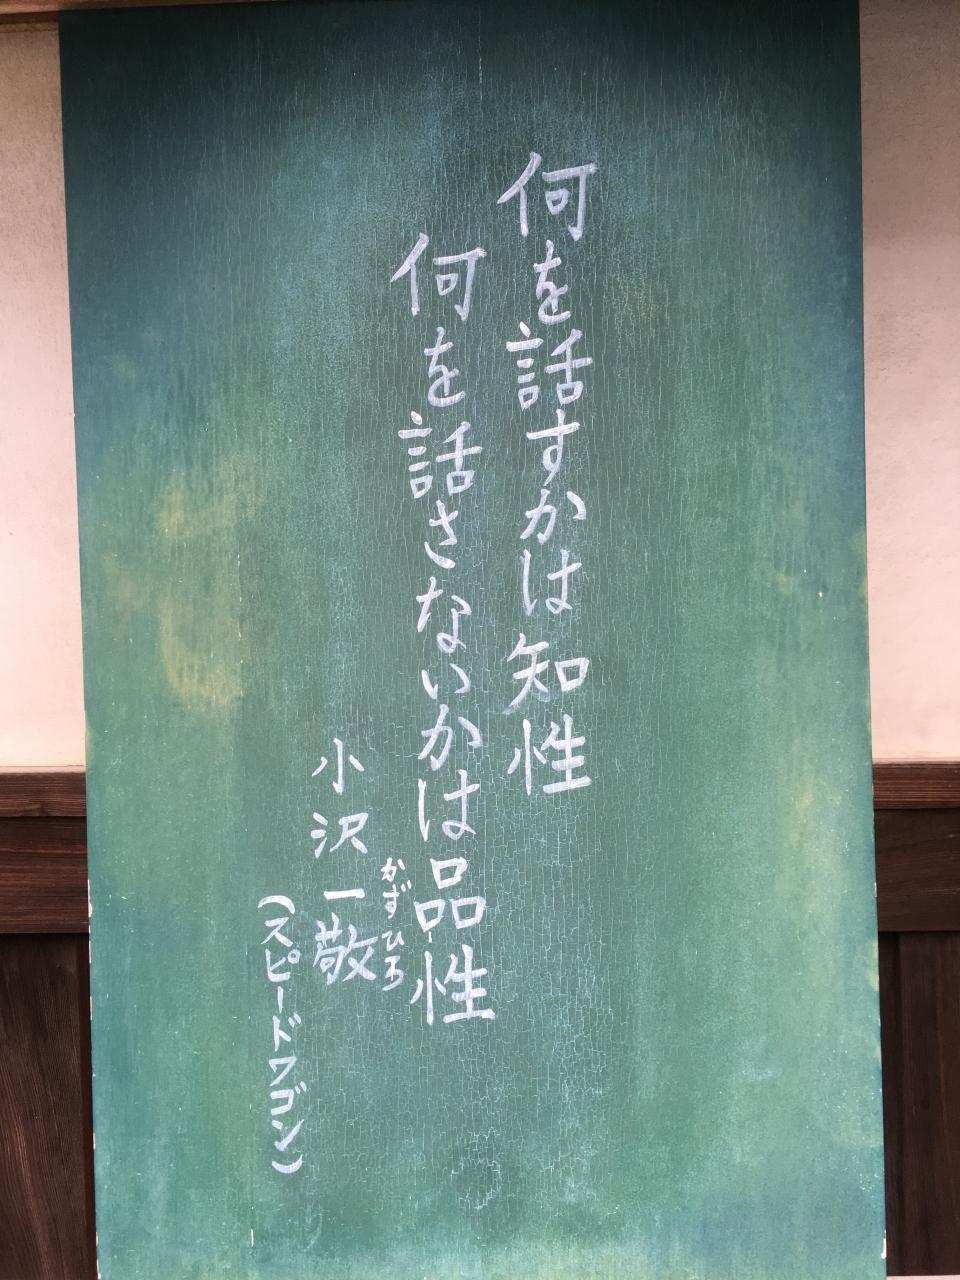 何を話すかは知性
何を話さないかは品性
かずひろ
小沢一敬
(スピードワゴン)